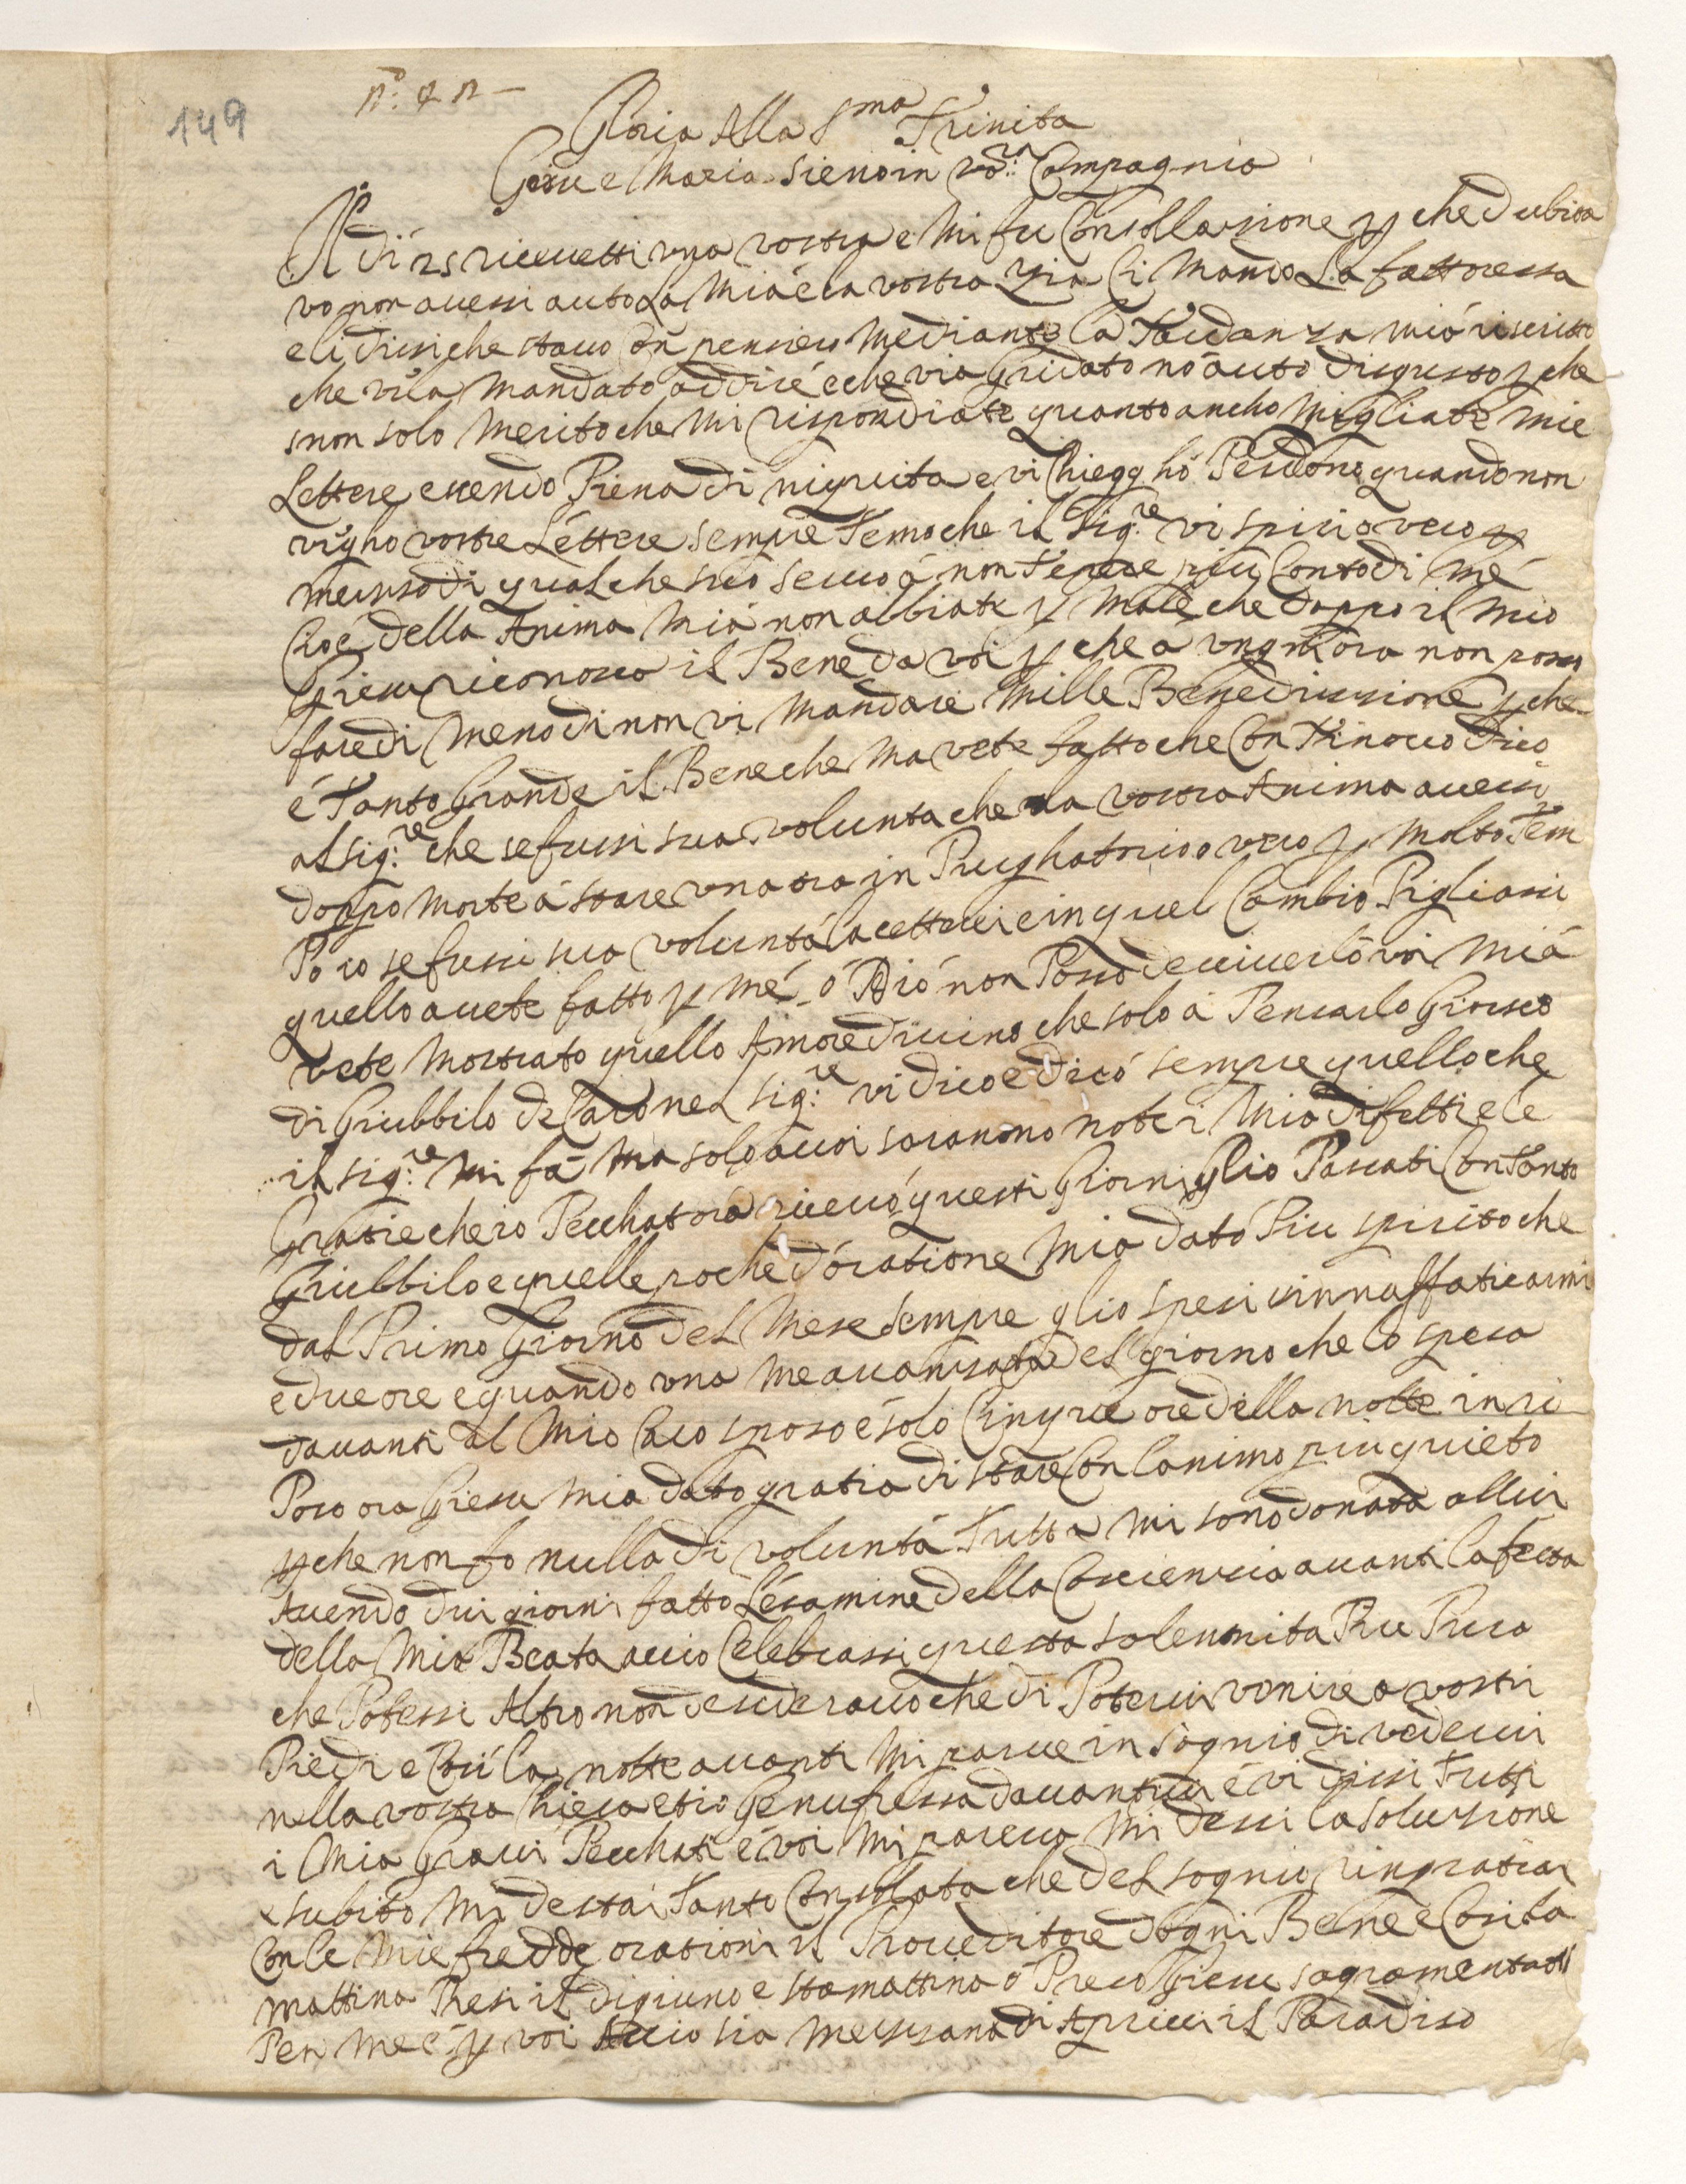 149
nº: 42 –
Gloria Alla Sma Trinita
Giesu e Maria sieno in vo:ra Compagnia
A dì 25 riceuetti una vostra e Mi fu Consollazione p che dubita
vo non auessi auto La Mia é la vostra zia li Mando La fattoressa
e li dissi che stauo Con pensiero Mediante la Tardanza mi á riscritto
che vi a Mandato addire e che vi a Gridato nō áuto disgusto p che
non solo Merito che Mi rispondiate quanto ancho pigliate mie
Lettere essendo Piena di niquita e vi Chiegghó Perdono quando non
vegho vostre Léttere sempre Temo che il Sig:re vi spiri o vero p
mezzo di qualche suo seruo á non Tenere piu Conto di Mé
Cioé della Anima Mia non abbiate p Male che doppo il Mio
Giesu riconosco il Bene da voi p che a ungni ora non posso
fare di Meno di non vi Mandare Mille Benedizzione p che
é Tanto Grande il Bene che Mavete fatto che Con
al Sig:re che se fussi sua volunta che la vostra Anima auessi
doppo Morte á stare una ora in Purghatorio o vero p Molto Tem
Po io se fussi sua voluntá lacettarei e in quel Cambio Pigliassi
quello auete fatto p Mé ó Dió non Posso deciuerló voi Mi á
vete Mostrato quello Amore diuino che solo á Pensarlo Gioisco
di Giubbilo de Caro nel Sig:re vi dico e dicó sempre quello che
il Sig:re Mi fá Ma solo a uoi saranno note i Mia difetti e le
Gratie che io Pecchatora riceuó questi Giorni glio Passati Con Tanto
Giubbilo e quelle poche d'óratione Mi a dató Piu spirito che
dal Primo Giorno del Mese sempre glio spesi in affaticarmi
e due ore e quando una me auanzata del giorno che lo spesa
dauanti al Mio Caro sposo é solo Cinque ore della notte in ri
Poso ora Giesu Mi a dato gratia di stare Con lanimo piu quieto
p che non fo nulla di voluntá Tutta Mi sono donata allui
Auendo dui giorni fatto Lésamine della Coscienzia auanti la festa
della Mia Beata accio Celebrassi questa solennita Piu Pura
che Potessi Altro non desiderauo che di Poterui venire a vostri
Piedi e Cosi la notte auanti Mi parue in sognio di vederui
nella vostra Chiesa et io Genuflessa dauantiui é vi dissi Tutti
i Mia Graui Pecchati é voi Mi pareua Mi dessi lasoluzione
e subito Mi destai Tanto Consolata che del sognio ringratiai
Con le Mie fredde orationi il Proueditore dogni Bene e Cosi la
mattina Presi il digiuno e stamattina ó Preso Giesu sagramentato
Per Me é p voi accio sia Mezzana di Apririci il Paradiso